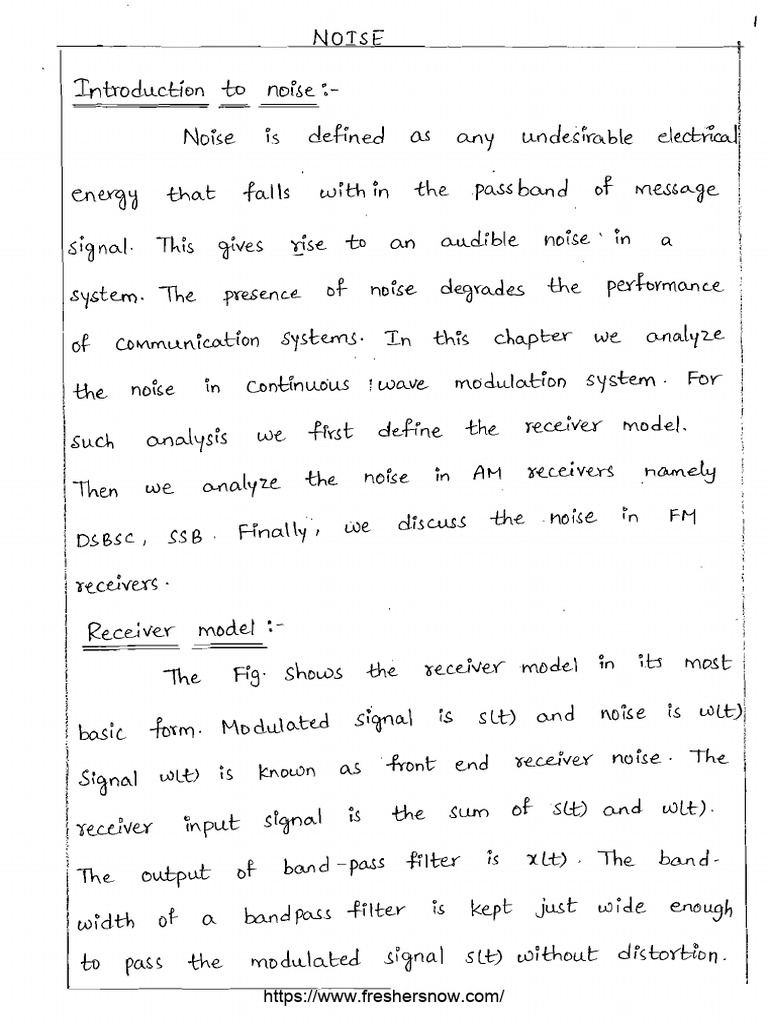 1
NOISE
Introduction to noise:-
Noise is defined as any undesirable electrical
energy that falls within the passband of message
signal. This gives rise to an audible noise in a
system. The presence of noise degrades the performance
of communication systems. In this chapter we analyze
the noise in continuous wave modulation system. For
such analysis we first define the receiver model.
Then we analyze the noise in AM receivers namely
DSBSC, SSB. Finally, we discuss the noise in FM
receivers.
Receiver model:-
The Fig. shows the receiver model in its most
basic form. Modulated signal is s(t) and noise is w(t)
Signal w(t) is known as front end receiver noise. The
receiver input signal is the sum of s(t) and w(t).
The output of band-pass filter is x(t). The band-
width of a bandpass filter is kept just wide enough
to pass the modulated signal s(t) without distortion.
https://www.freshersnow.com/